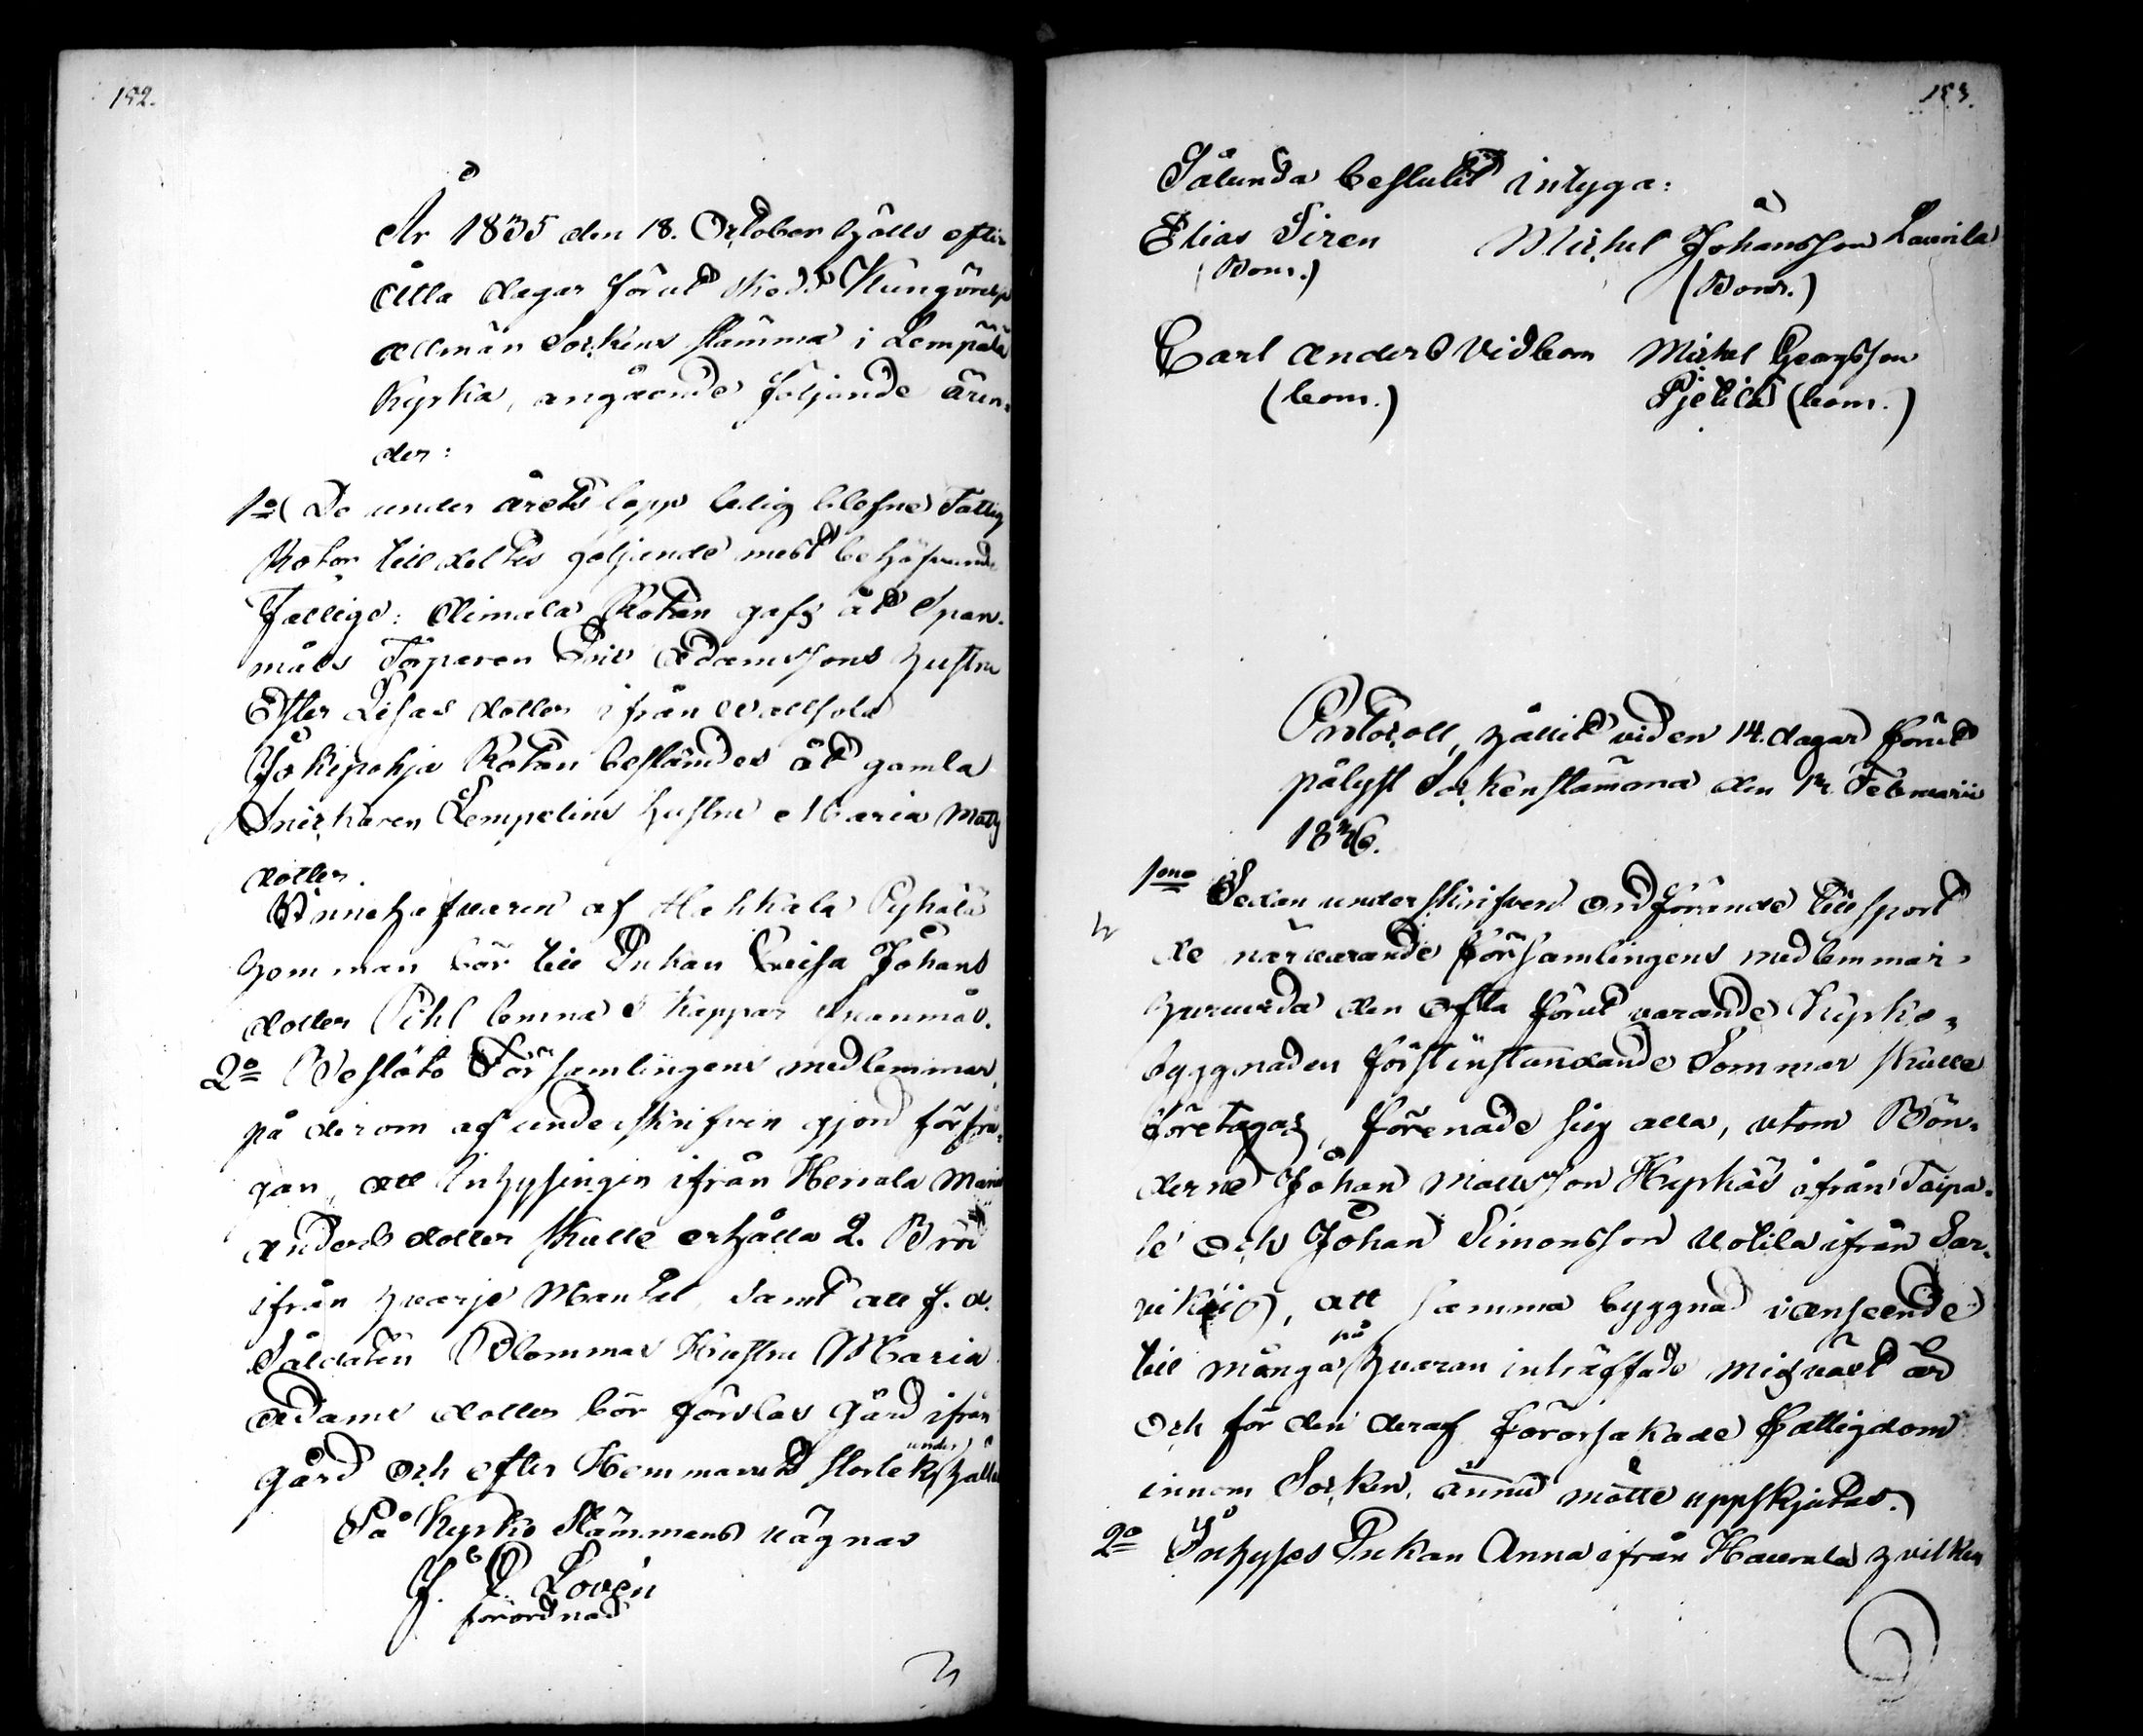 192.
År 1835 den 18. October hölls efter
åtta dagar förut skedd Kungörelse
allmän Sockne stämma i Lempäälä
Kyrka, angående följande ären-
der:
1o De under årets lopp ledig blefne Fattig
Rotar tilldeltes följande mest behöfvande
Fattige: Aimala Rotan gafs åt Span-
måls Torparen Eric Adamssons hustru
Ester Lisas dotter ifrån
Jokipohja Rotan bestämdes åt gamla
Snickaren Lempelins hustru Maria Matts
dotter.
Innehafvaren af Hakkala Pyhälä
hemman bör till Enkan Lovisa Johans
dotter Pihl lemna kappar Spanmål.
2o Beslöto Församlingens medlemmar,
på derom af underskrifven gjord förfrå-
gan, att Inhysingen ifrån Herrala Maria
Anders dotter skulle erhålla 2. Bröd
ifrån hvarje Mantal, samt att f. d.
Soldaten Blommas Hustru Maria
Adams dotter bör förslas gård ifrån
gård och efter Hemmanets storlek underhållas
På Kyrko Stämmans vägnar
J. E. Lovén
förordnad
193.
Sålunda beslutit intyga:
Elias Siren Michel Johansson Laurila
(Bom.) (Bom.)
Carl Anders Vidbom Michel Georgsson
(bom.) Pjetilä (bom.)
Protocoll, hållit vid en 14. dagar förut
pålyst Sockenstämma den Februarii
1836.
1mo Sedan underskrifven Ordförande tillspord
de närvarande församlingens medlemmar,
huruvida den ofta förut varande Kyrko-
byggnaden förstinstundande Sommar skulle
företagas, förenade sig alla, utom Bön-
derne Johan Mattsson Hyrkäs ifrån Taipa-
le och Johan Simonsson Uotila ifrån Sar-
vikko, att samma byggnad i anseende
till många på hvaran inträffade misväxt år
och för den deraf förorsakade fattigdom
innom Socken, ännu måtte uppskjutas.
2o Inhyses Enkan Anna ifrån Haurala hvilken